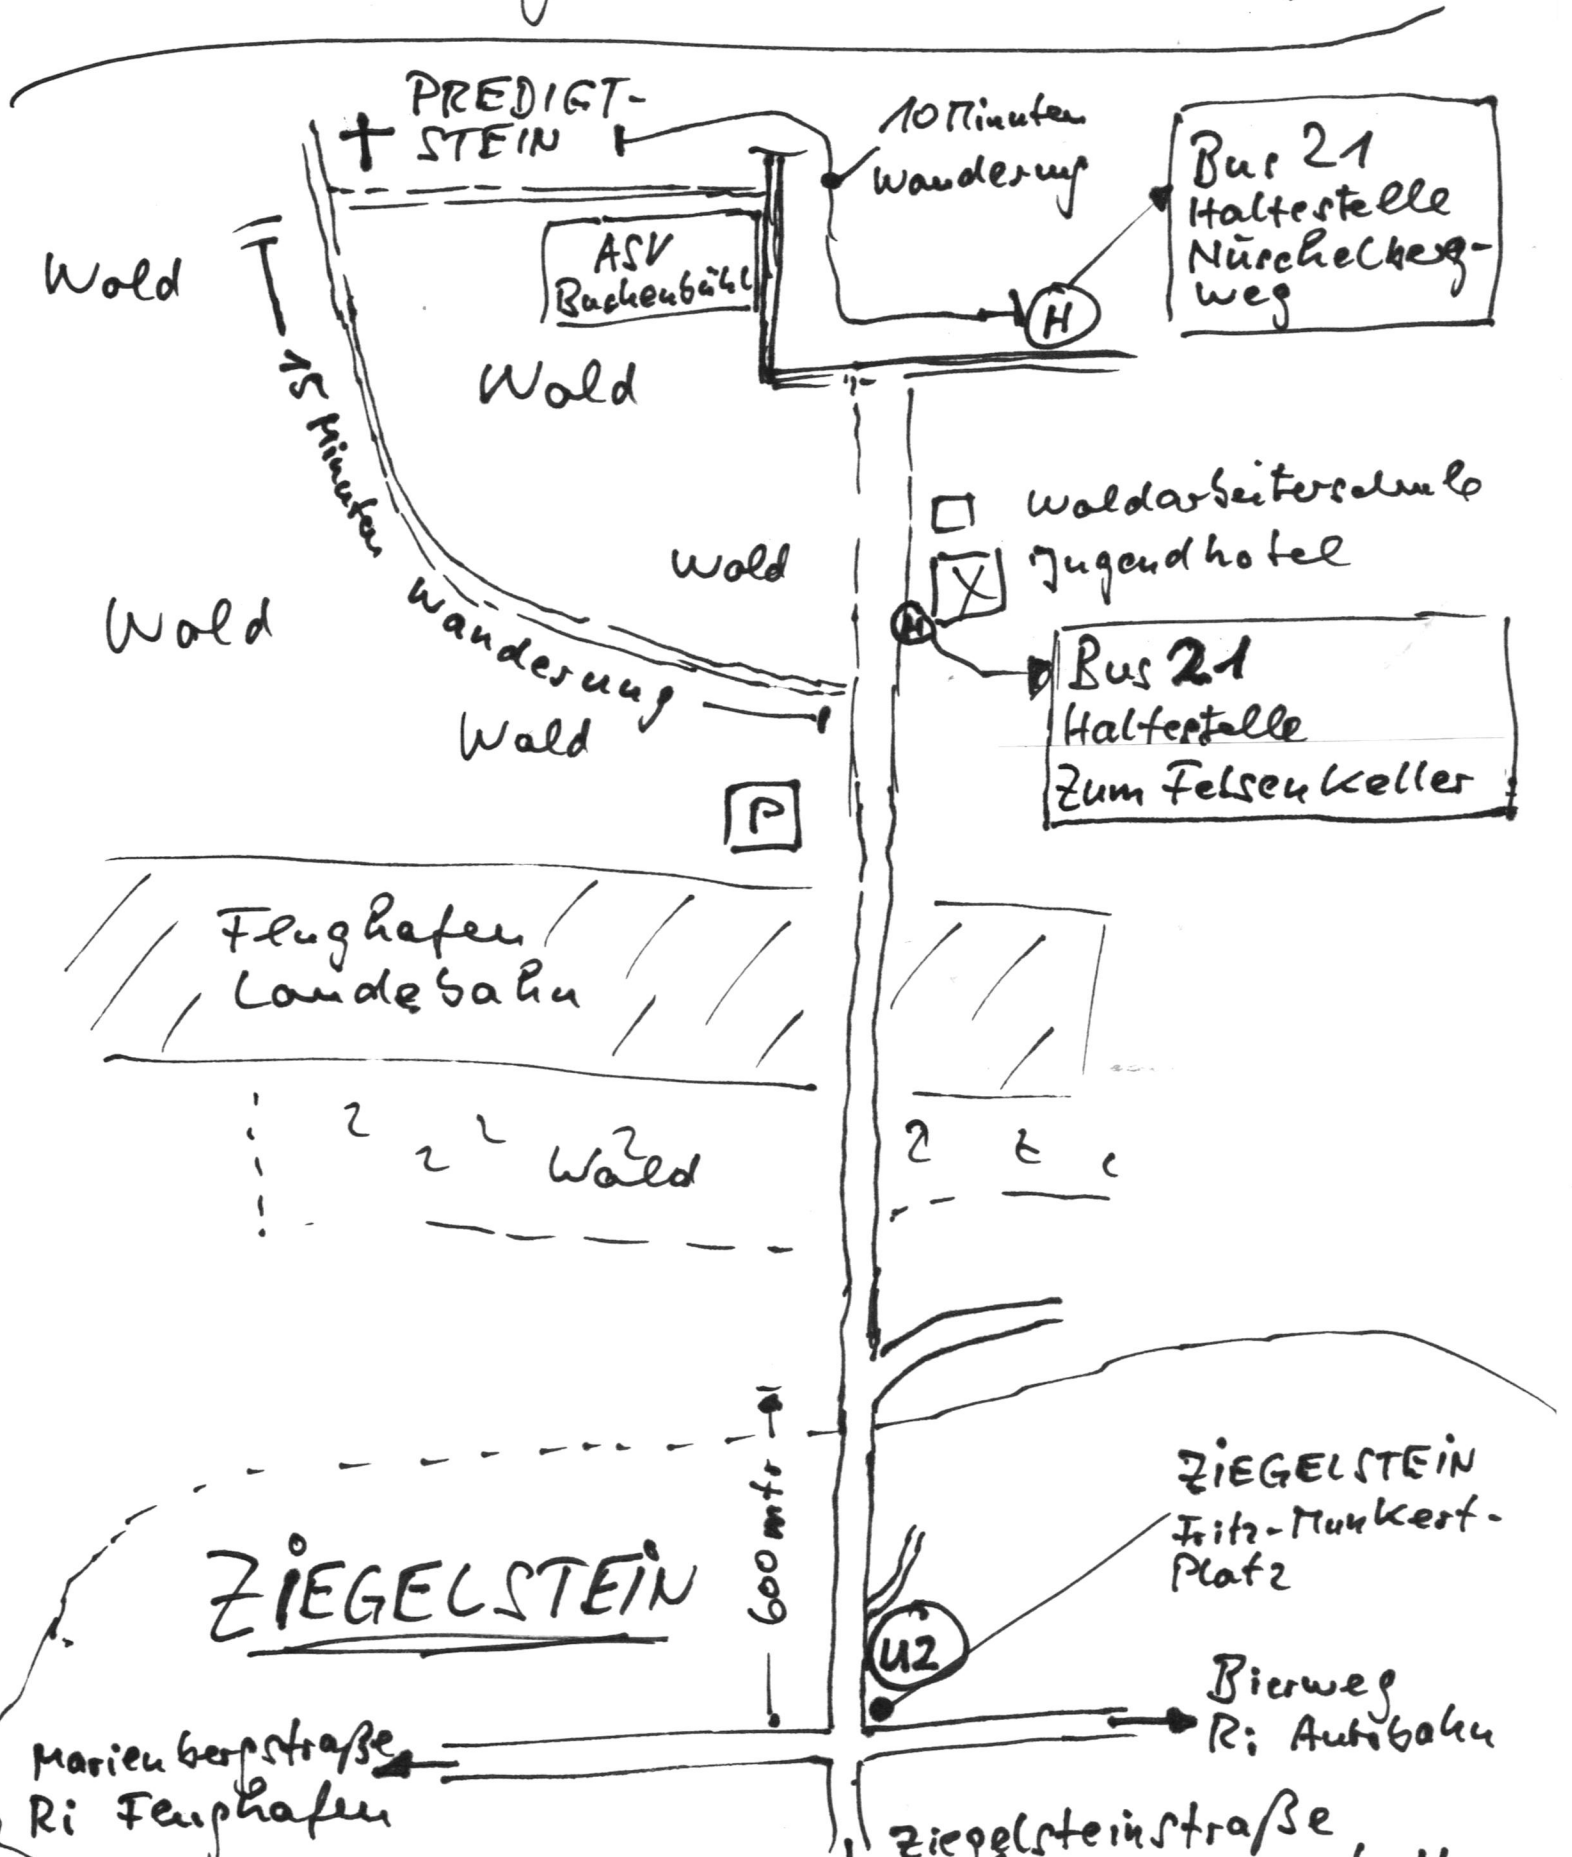 PREDIGT-
STEIN
10 Minuten
Wanderung
Bus 21
Haltestelle
Nüschelberg-
weg
ASV
Buchenbühl
H
Wald
Wald
15 Minuten Wanderung
Waldarbeiterschule
Jugendhotel
X
Wald
H
Wald
Bus 21
Haltestelle
Zum Felsenkeller
Wald
P
Flughafen
Landebahn
Wald
600 mtr
ZIEGELSTEIN
Fritz-Munkert-
Platz
ZIEGELSTEIN
U2
Bierweg
Ri Autobahn
Marienbergstraße
Ri Flughafen
Ziegelsteinstraße